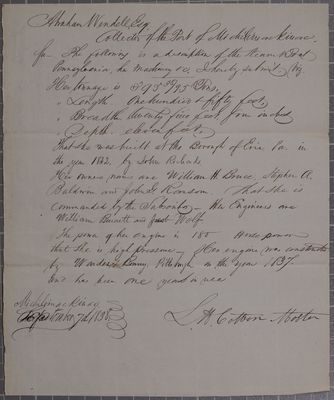 Abraham Wendell, Esq.
Collector of the Port of Michilimackinac.
Sir The following is a description of the Steam Boat
Pennsylvania, her machinery &c I hereby submit
Her tonnage is 395 Tons,
" Length one hundred & fifty feet,
" Breadth twenty five feet four inches
" Depth eleven feet.
That she was built at the Borough of Erie Pa. in
the year 1832, by John Richards
Her owners now are William H. Bruce, Stephen A.
Baldwin and John L Ransom. That she is
commanded by the Subscriber Her Engineers are
William Burnett and Wolf
The power of her engine is 180 Horse power
that she is high pressure Her engine was constructed
by Pittsburgh in the year 1837
and has been one year in use
Michilimackinac
September 7th 1838
L. H. Cotton Master